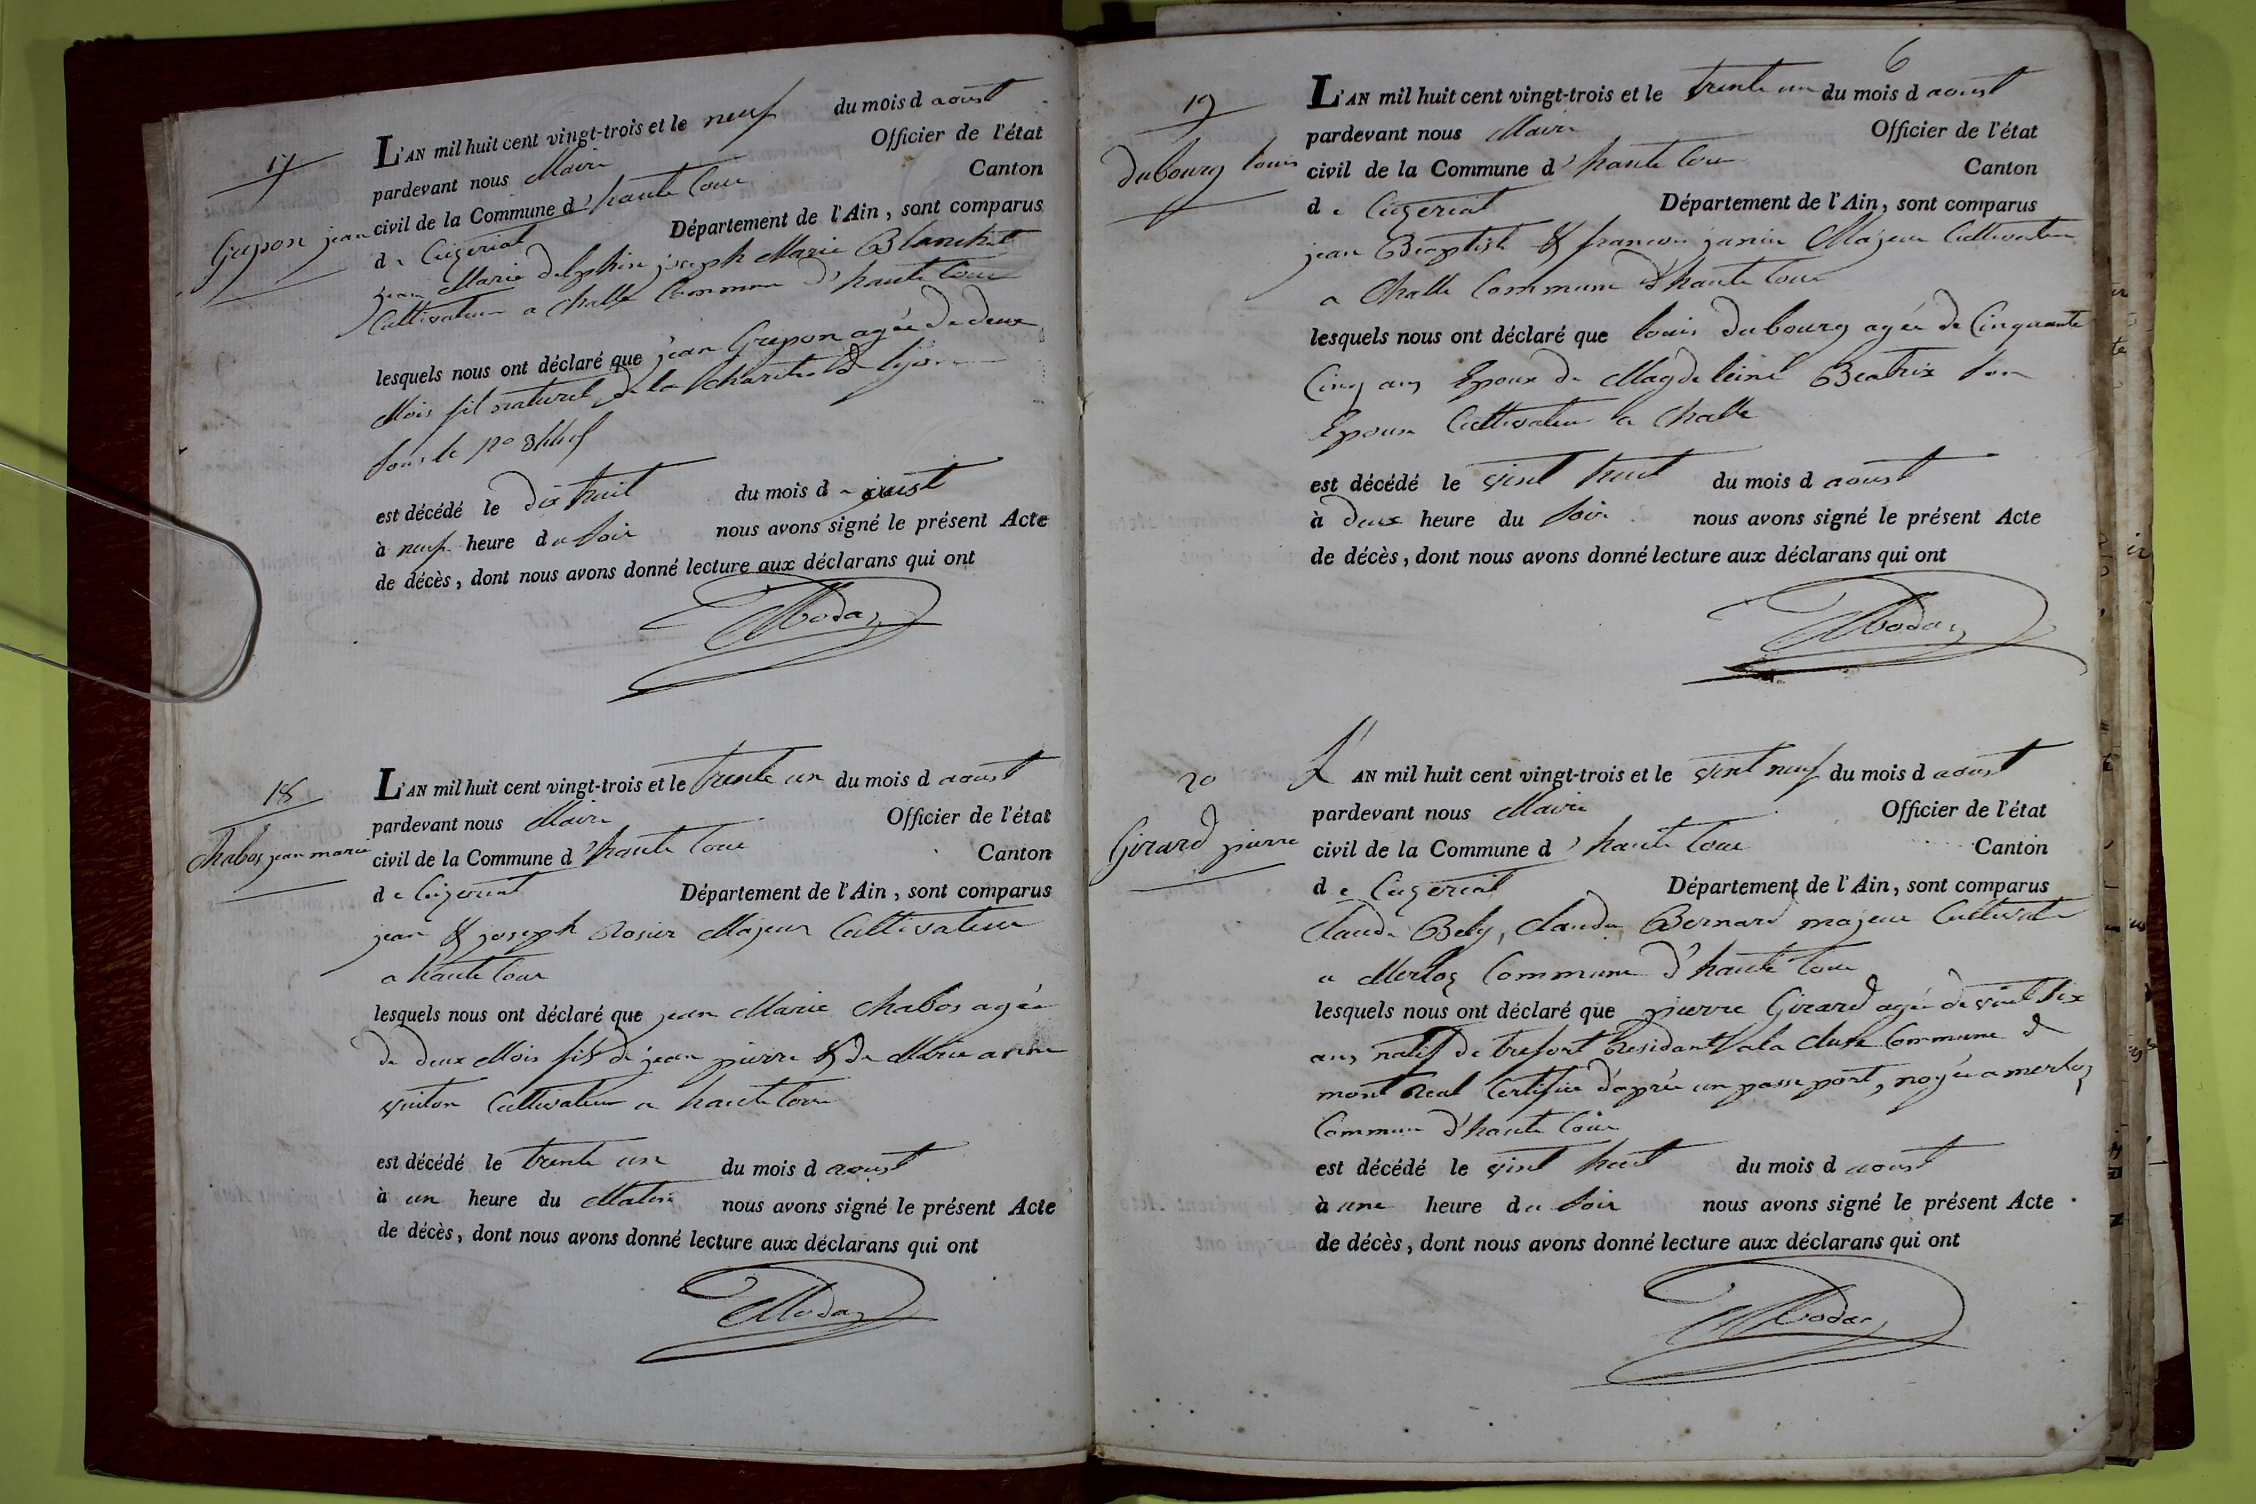 17
Grepon jean
L'AN mil huit cent vingt-trois et le neuf du mois d aoust
pardevant nous Maire Officier de l'état
civil de la Commune d'haute Cour Canton
de Ceyzeriat Département de l'Ain, sont comparus
jean Marie delphin joseph Marie Blanchet
Cultivateur a Challe Commune d'haute Cour
lesquels nous ont déclaré que jean Grepon agée de deux
Mois fil naturel de la Charité de lyon
sous le no
est décédé le dix huit du mois d
à neuf heure du soir nous avons signé le présent Acte
de décès, dont nous avons donné lecture aux déclarans qui ont
18
Chabos jean marie
L'AN mil huit cent vingt-trois et le trente un du mois d aoust
pardevant nous Maire Officier de l'état
civil de la Commune d'haute Cour Canton
de Ceyzeriat Département de l'Ain, sont comparus
jean & joseph Rosier Majeur Cultivateur
a haute Cour
lesquels nous ont déclaré que jean Marie Chabos agée
de deux Mois fils de jean pierre & de Marie anne
Cultivateur a haute Cour
est décédé le trente un du mois d aoust
à un heure du Matin nous avons signé le présent Acte
de décès, dont nous avons donné lecture aux déclarans qui ont
6
19
dubourg louis
L'AN mil huit cent vingt-trois et le trente un du mois d aoust
pardevant nous Maire Officier de l'état
civil de la Commune d'haute Cour Canton
de Ceyzeriat Département de l'Ain, sont comparus
jean Baptiste & francois janin Majeur Cultivateur
a Challe Commune d'haute Cour
lesquels nous ont déclaré que louis dubourg agée de Cinquante
Cinq ans Epoux de Magdeleine Beatrix son
Epouse Cultivateur a Challe
est décédé le vint huit du mois d aoust
à deux heure du soir nous avons signé le présent Acte
de décès, dont nous avons donné lecture aux déclarans qui ont
20
Girard pierre
L'AN mil huit cent vingt-trois et le vint neuf du mois d aoust
pardevant nous Maire Officier de l'état
civil de la Commune d'haute Cour Canton
de Ceyzeriat Département de l'Ain, sont comparus
Claude Bely, Claude Bernard majeur Cultivat
a Merloz Commune d'haute Cour
lesquels nous ont déclaré que pierre Girard agée de vint six
ans natif de trefort Residant a la Cluse Commune d
mont Real Certifiée d'aprée un passe port, noyée a merloz
Commune d'haute Cour
est décédé le vint huit du mois d aoust
à une heure du soir nous avons signé le présent Acte
de décès, dont nous avons donné lecture aux déclarans qui ont